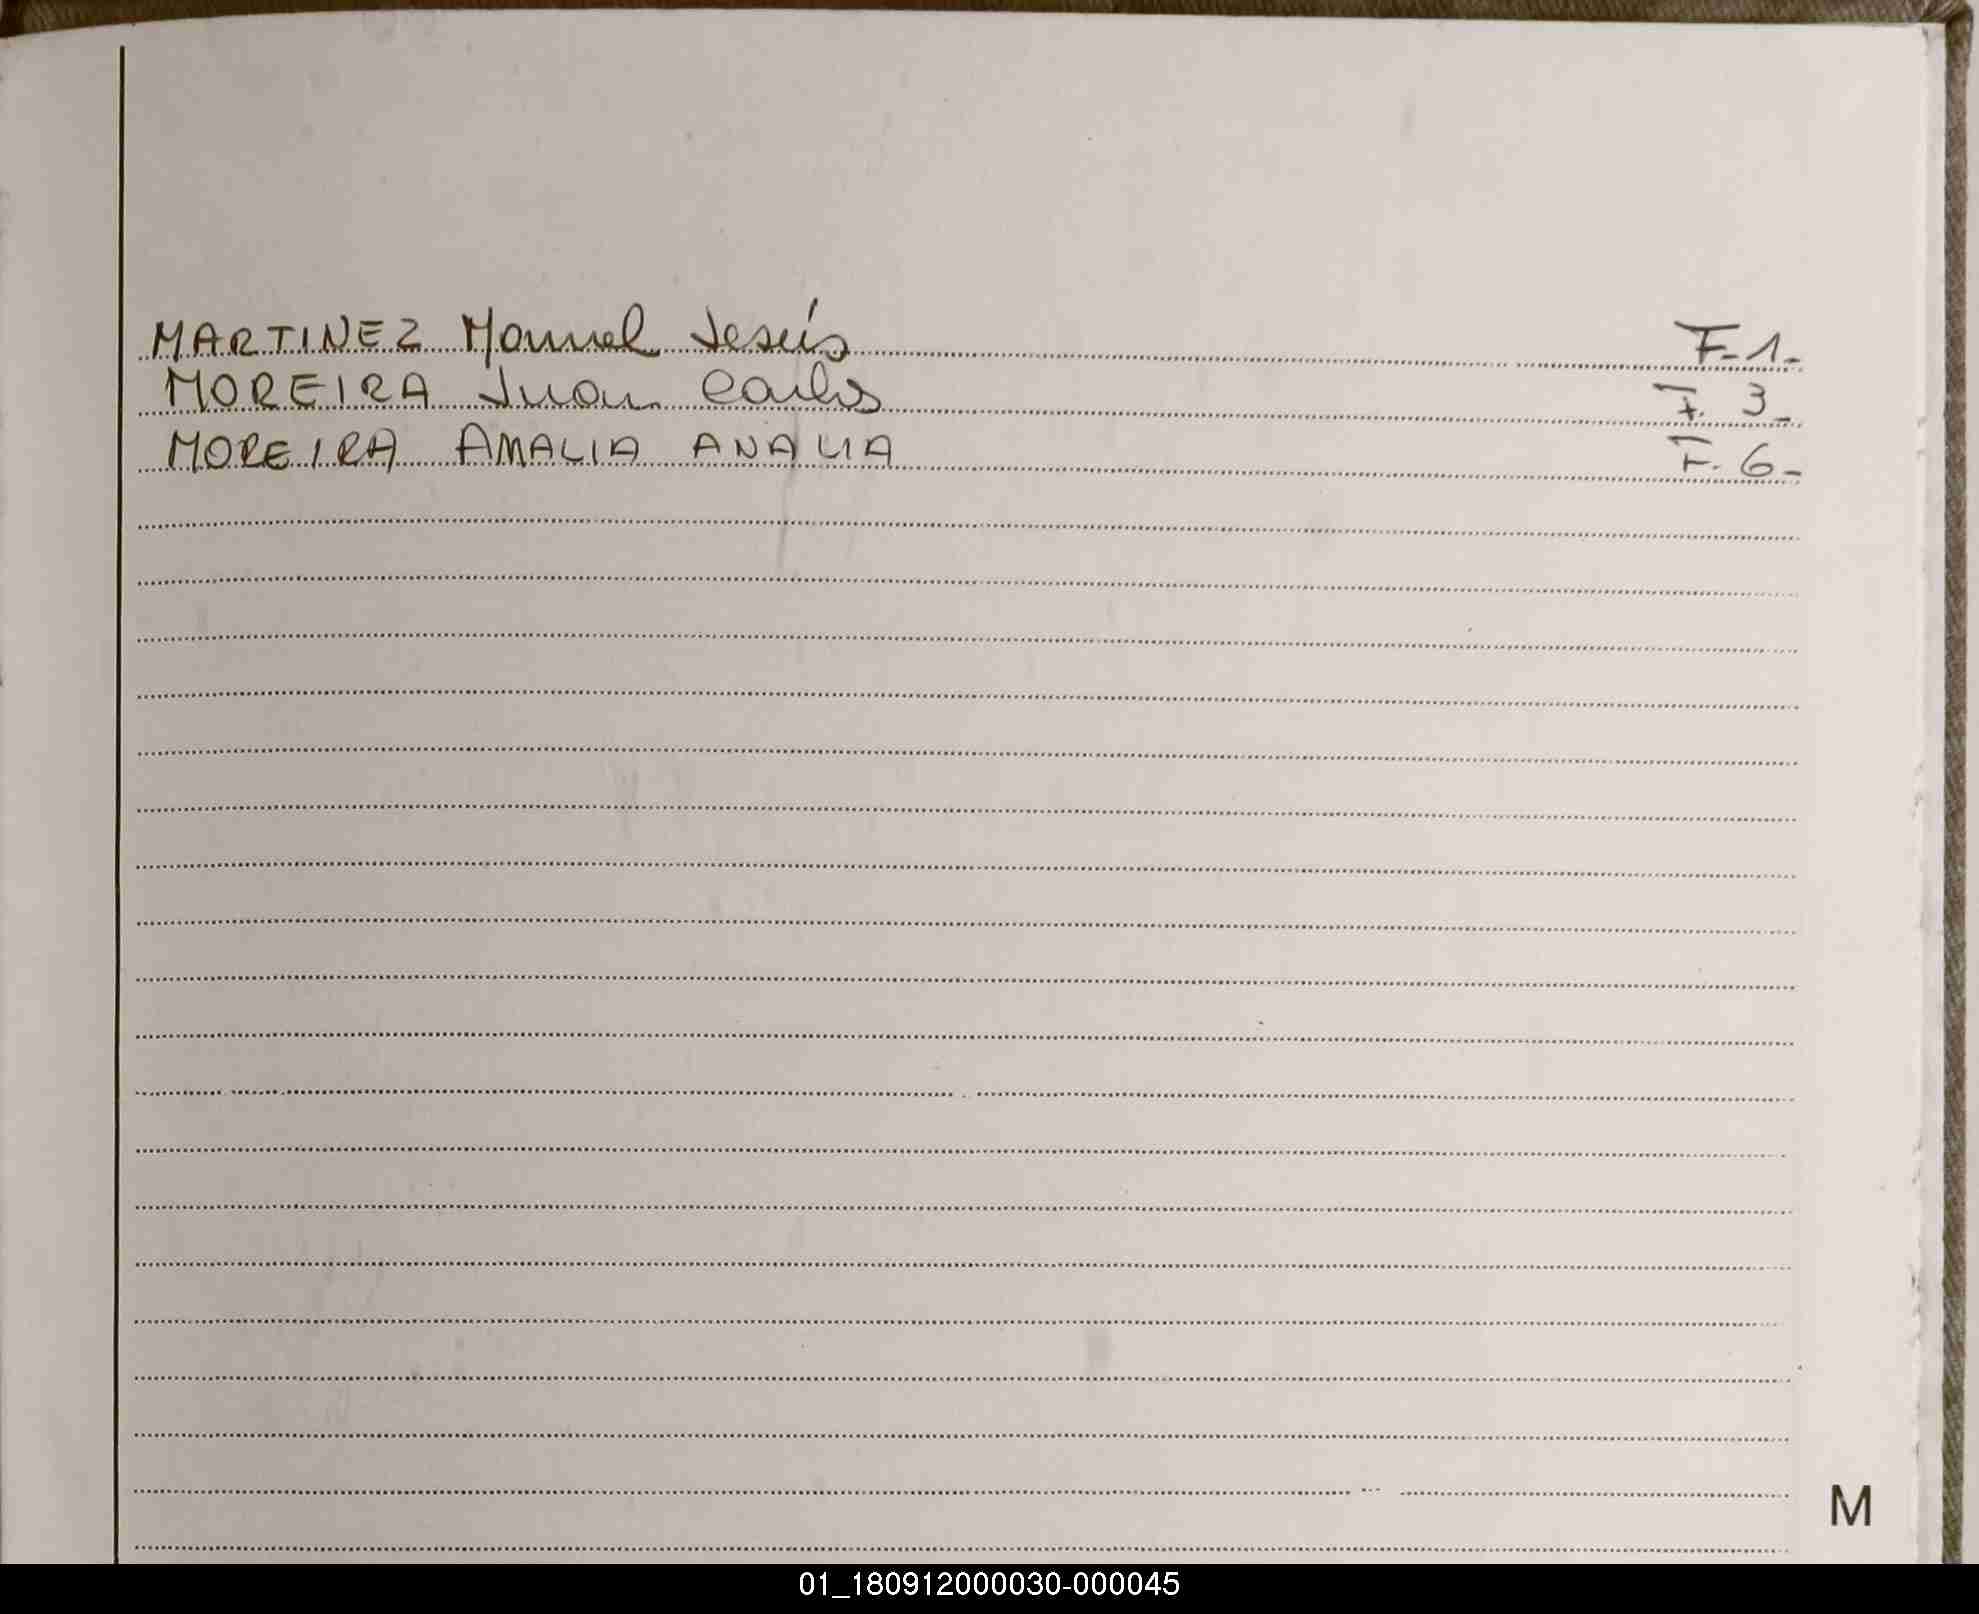 MARTINEZ Manuel Jesús F-1-
MOREIRA Juan Carlos F. 3-
MOREIRA AMALIA ANALIA F. 6-
M
01_180912000030-000045